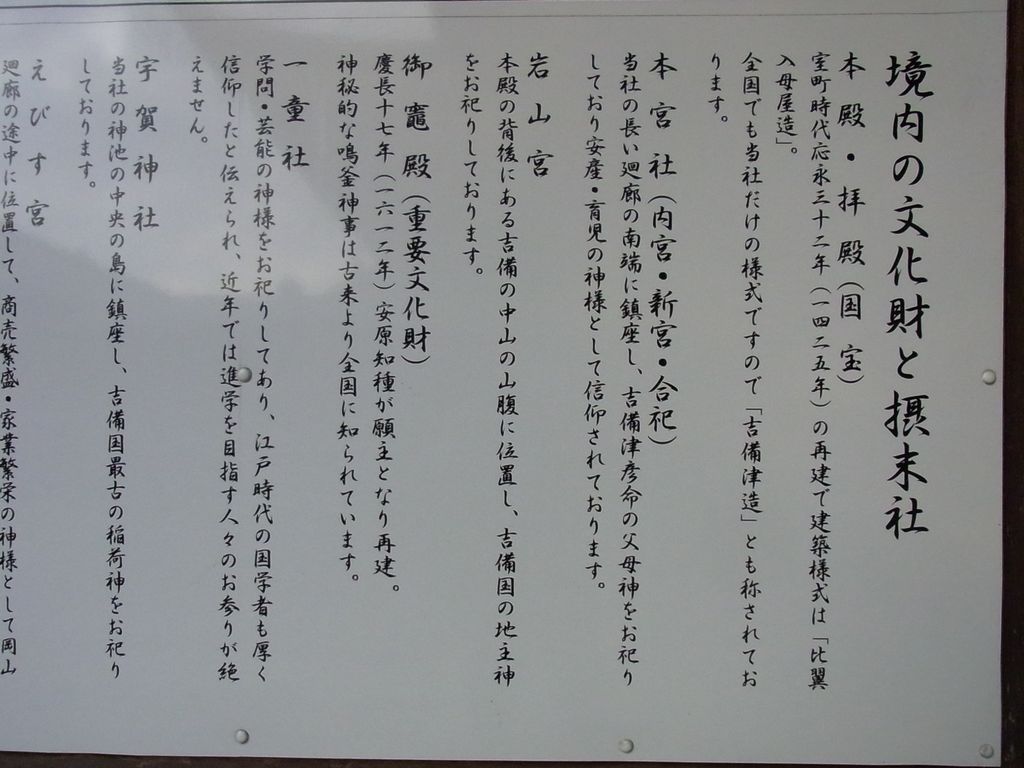 境内の文化財と摂末社
本殿・拝殿（国宝）
室町時代応永三十二年（一四二五年）の再建で建築様式は「比翼
入母屋造」。
全国でも当社だけの様式ですので「吉備津造」とも称されてお
ります。
本宮社（内宮・新宮・合祀）
当社の長い廻廊の南端に鎮座し、吉備津彦命の父母神をお祀り
しており安産・育児の神様として信仰されております。
岩山宮
本殿の背後にある吉備の中山の山腹に位置し、吉備国の地主神
をお祀りしております。
御竈殿（重要文化財）
慶長十七年（一六一二年）安原知種が願主となり再建。
神秘的な鳴釜神事は古来より全国に知られています。
一童社
学問・芸能の神様をお祀りしてあり、江戸時代の国学者も厚く
信仰したと伝えられ、近年では進学を目指す人々のお参りが絶
えません。
宇賀神社
当社の神池の中央の島に鎮座し、吉備国最古の稲荷神をお祀り
しております。
えびす宮
廻廊の途中に位置して、商売繁盛・家業繁栄の神様として岡山